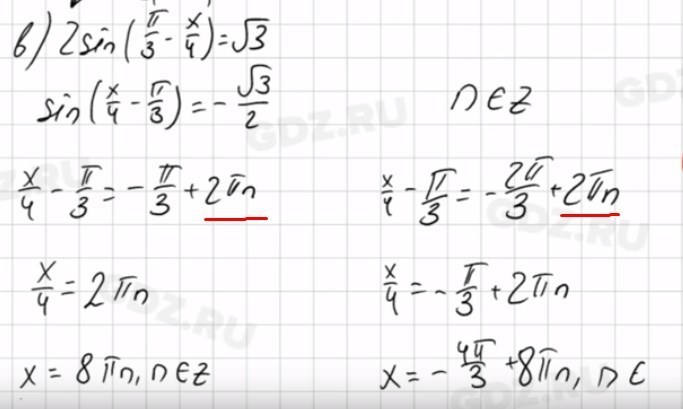 в) 2sin(π/3 - x/4) = √3
sin(x/4 - π/3) = - √3/2
n∈Z
x/4 - π/3 = - π/3 + 2πn
x/4 - π/3 = - 2π/3 + 2πn
x/4 = 2πn
x/4 = - π/3 + 2πn
x = 8πn, n∈Z
x = - 4π/3 + 8πn, n∈
GDZ.RU
GDZ.RU
GDZ.RU